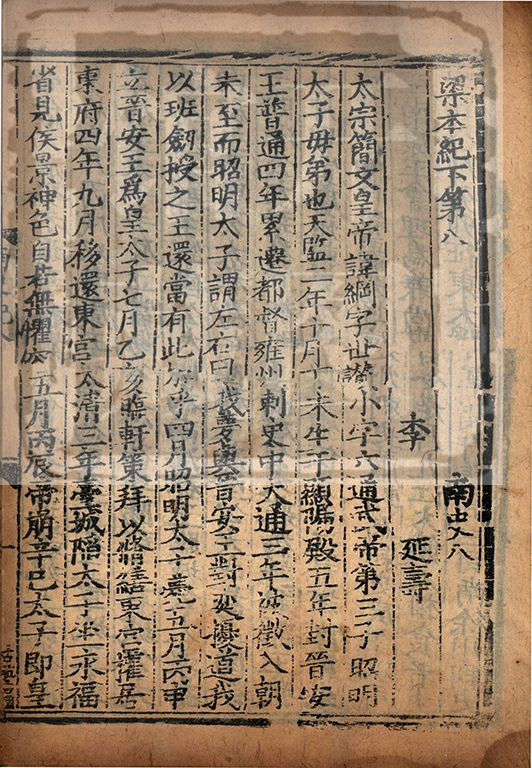 梁本紀下第八　南史八
李　延壽
太宗簡文皇帝諱綱字世讃小字六通武帝第三子昭明
太子母弟也天監二年十月丁未生于顯陽殿五年封晉安
王普通四年累遷都督雍州刺史中大通三年被徵入朝
未至而昭明太子謂左右曰我夢與晉安王對奕擾道我
以班劒授之王還當有此加乎四月昭明太子薨五月丙申
立晉安王爲皇太子七月乙亥臨軒策拜以脩繕東宮權居
東府四年九月移還東宮太清三年臺城陷太子坐永福
省見侯景神色自若無懼容五月丙辰帝崩辛巳太子即皇